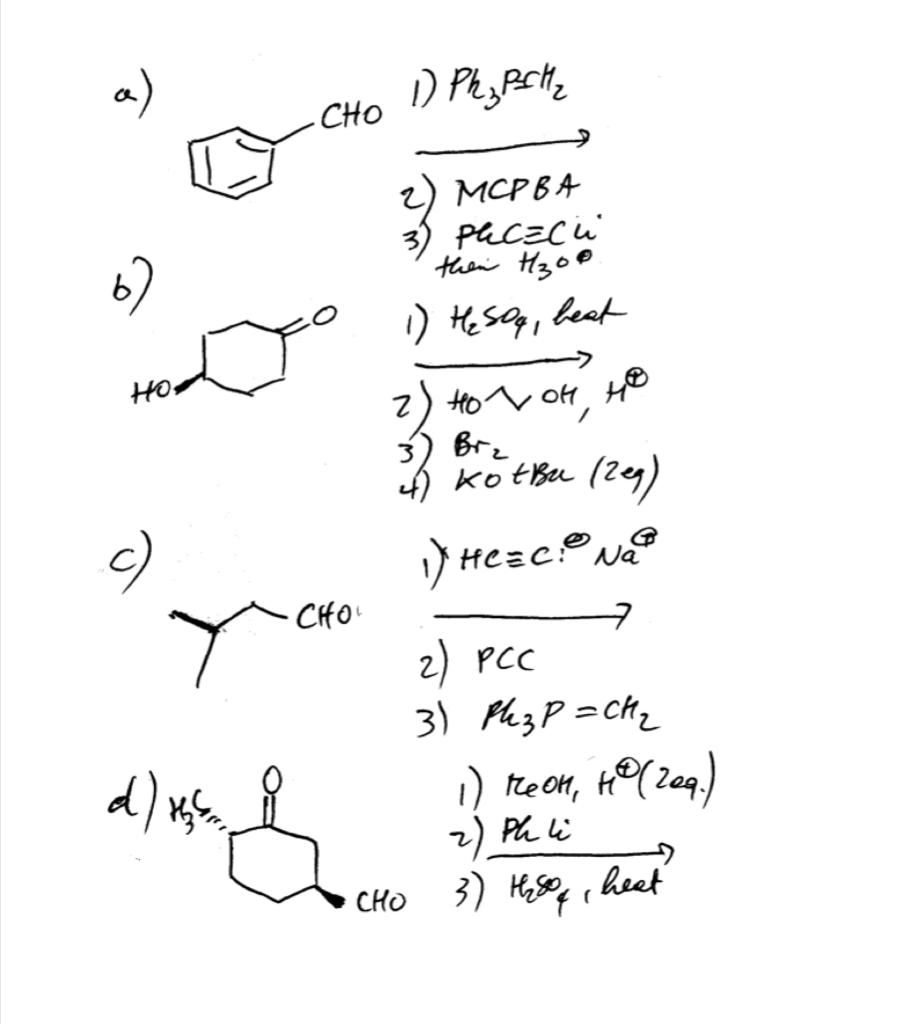 a)
CHO
1) Ph₃P=CH₂
2) MCPBA
3) PhC≡CLi
then H₃O⊕
b)
O
HO
1) H₂SO₄, heat
2) HO OH, H⊕
3) Br₂
4) KOtBu (2eq)
c)
CHO
1) HC≡C:⊖ Na⊕
2) PCC
3) Ph₃P=CH₂
d)
O
H₃C
CHO
1) MeOH, H⊕ (2eq.)
2) PhLi
3) H₂SO₄, heat